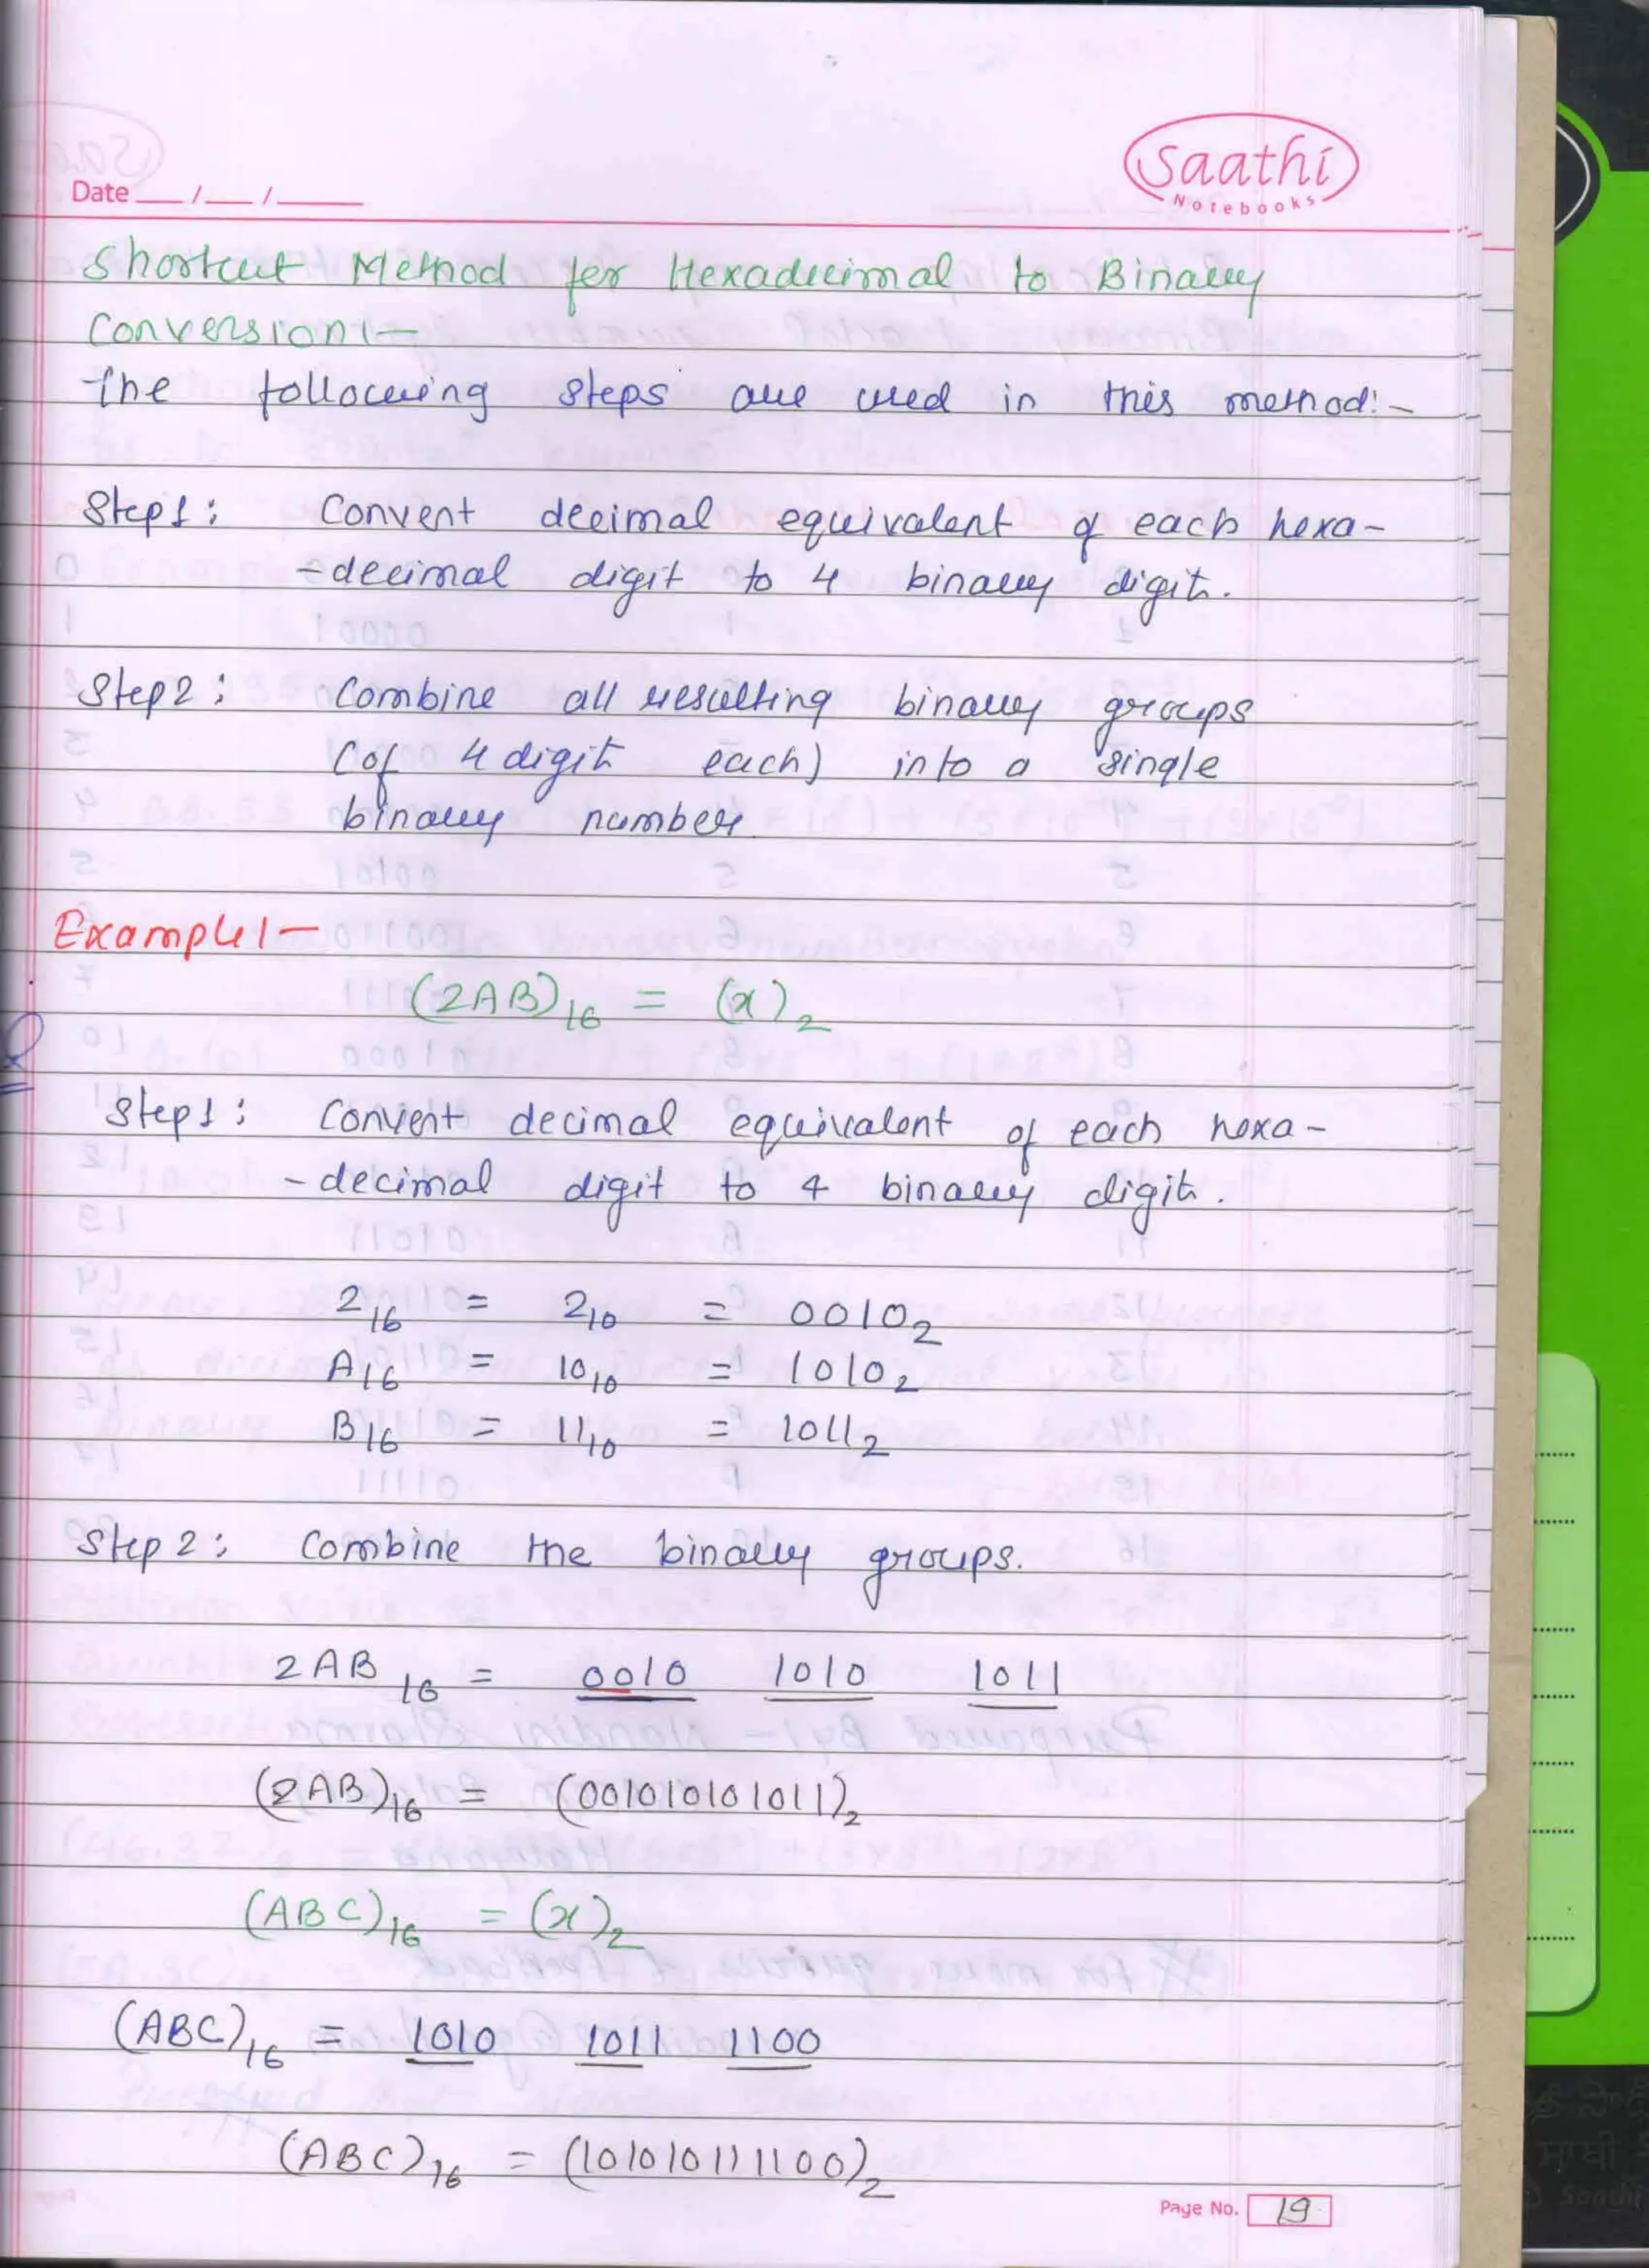 Saathi
Notebooks
Date __/__/____
Shortcut Method for Hexadecimal to Binary
Conversion:-
The following steps are used in this method:-
Step1: Convert decimal equivalent of each hexa-
-decimal digit to 4 binary digit.
Step2: Combine all resulting binary groups
(of 4 digit each) into a single
binary number
Example:-
(2AB)₁₆ = (x)₂
Step1: Convert decimal equivalent of each hexa-
-decimal digit to 4 binary digit.
2₁₆ = 2₁₀ = 0010₂
A₁₆ = 10₁₀ = 1010₂
B₁₆ = 11₁₀ = 1011₂
Step 2: Combine the binary groups.
2AB₁₆ = 0010 1010 1011
(2AB)₁₆ = (001010101011)₂
(ABC)₁₆ = (x)₂
(ABC)₁₆ = 1010 1011 1100
(ABC)₁₆ = (101010111100)₂
Page No. 19